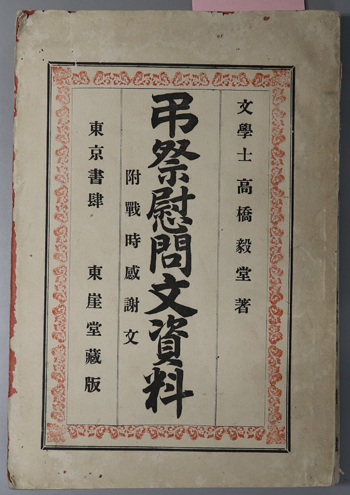 文學士 高橋毅堂著
弔祭慰問文資料
附戰時感謝文
東京書肆 東崖堂藏版